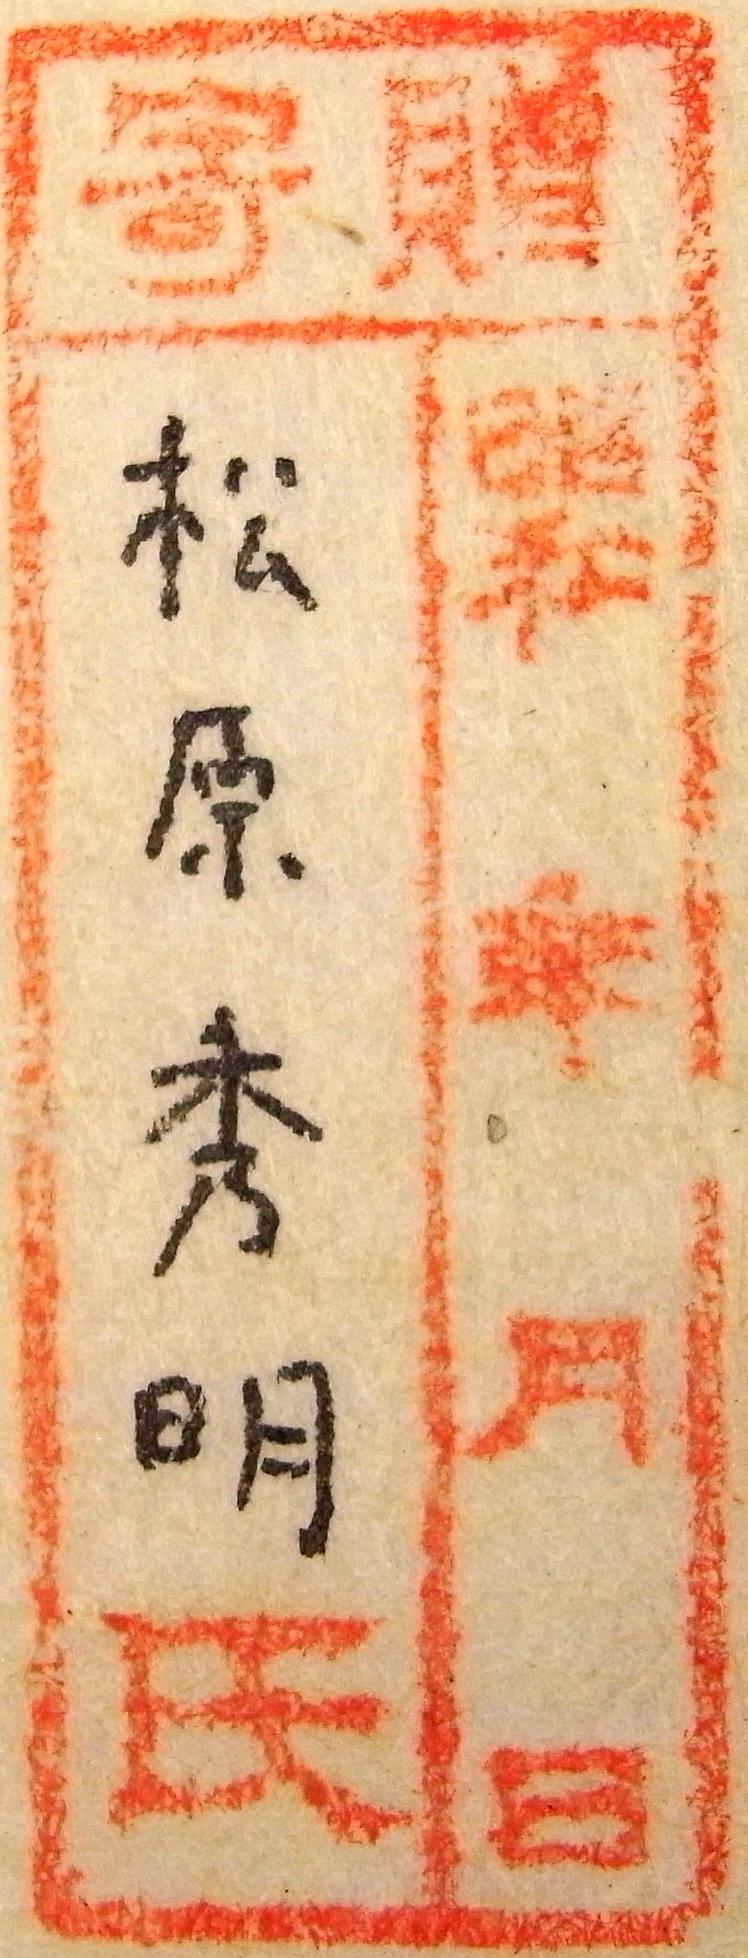 寄贈
昭和 年 月 日
松原秀明氏